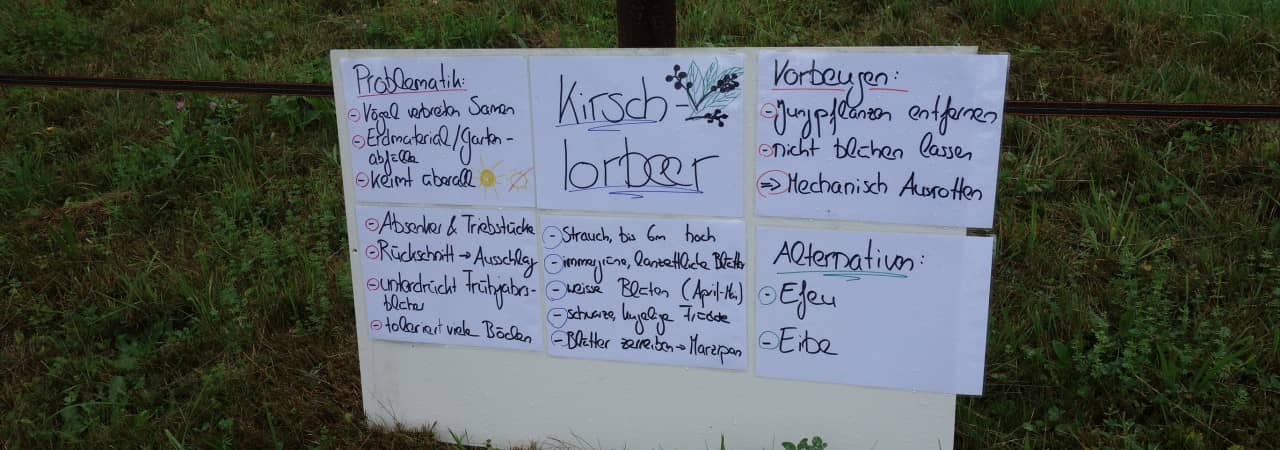 Problematik:
- Vögel verbreiten Samen
- Erdmaterial/Garten-
abfälle
- Keimt überall
- Absenker & Triebstücke
- Rückschnitt → Ausschlag
- unterdrückt Frühjahrs-
blüher
- toleriert viele Böden
Kirsch-
lorbeer
- Strauch, bis 6m hoch
- immergrüne, lanzettliche Blätter
- weisse Blüten (April-Mai)
- schwarze, kugelige Früchte
- Blätter zerreiben → Marzipan
Vorbeugen:
- Jungpflanzen entfernen
- nicht blühen lassen
⇒ Mechanisch Ausrotten
Alternativen:
- Efeu
- Eibe